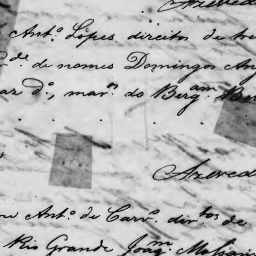 Azeved
Ant.º Lopes, direitos de
de de nomes Domingos An
ar d.º, mar.os do Berg.am
Azeved
Ant.º de Carv.º dir.tos de
Rio Grande Joaq.m